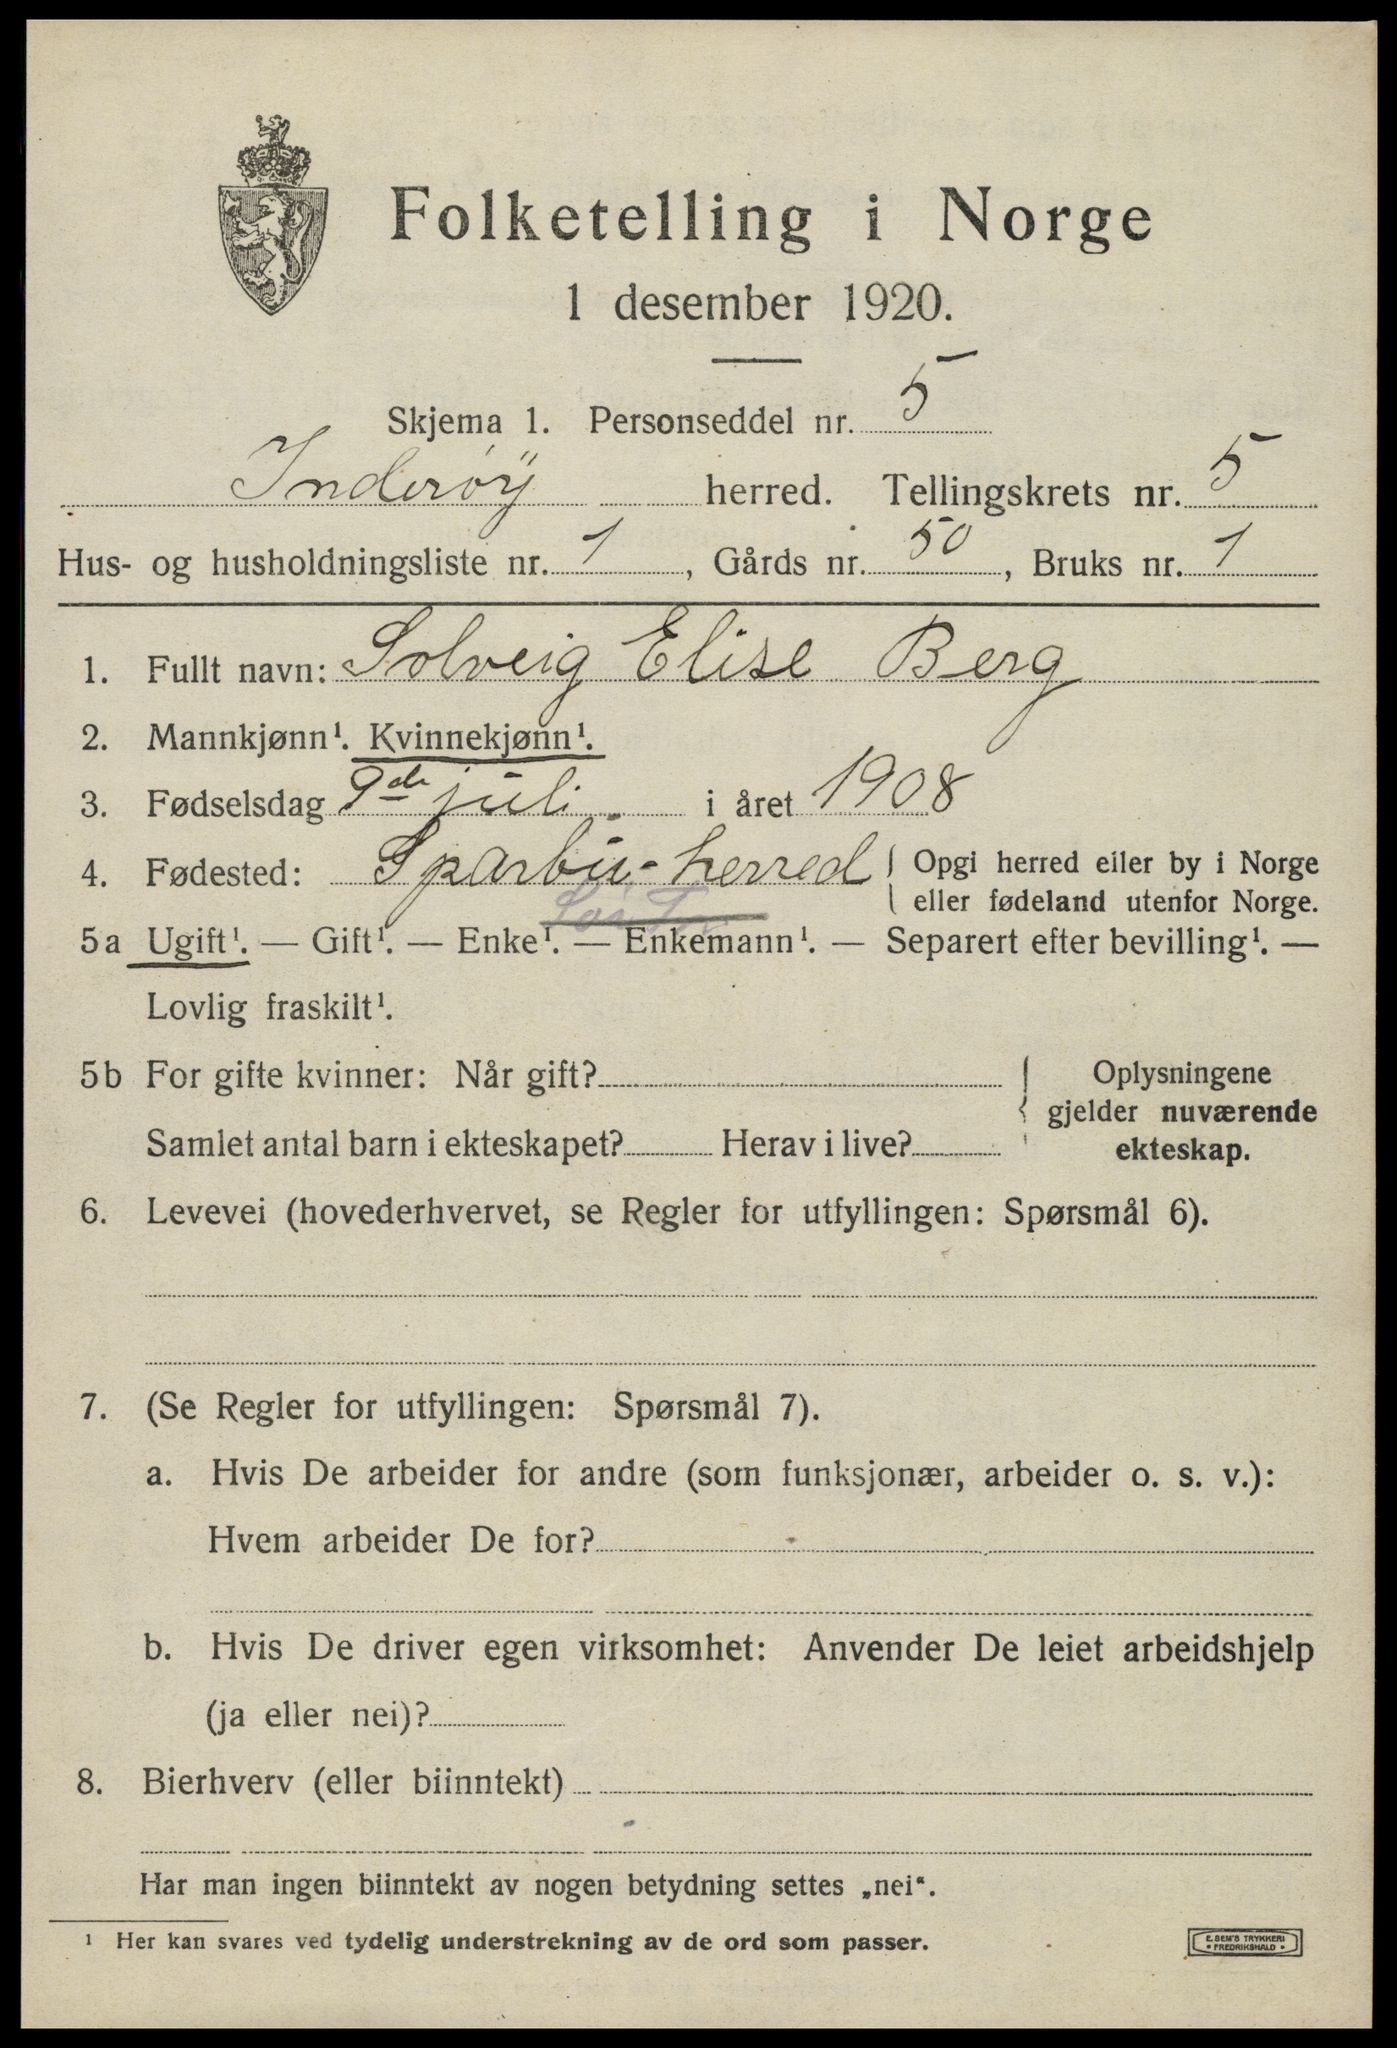 Folketelling i Norge
1 desember 1920.
Skjema 1. Personseddel nr. 5
Inderöy herred. Tellingskrets nr. 5
Hus- og husholdningsliste nr. 1, Gårds nr. 50, Bruks nr. 1
1. Fullt navn: Solveig Elise Berg
2. Mannkjønn¹. Kvinnekjønn¹.
3. Fødselsdag 9de juli i året 1908
4. Fødested: Sparbu-herred { Opgi herred eiler by i Norge
eller fødeland utenfor Norge.
5a Ugift¹. — Gift¹. — Enke¹. — Enkemann¹. — Separert efter bevilling¹. —
Lovlig fraskilt¹.
5b For gifte kvinner: Når gift?
Samlet antal barn i ekteskapet? Herav i live?
{ Oplysningene
gjelder nuværende
ekteskap.
6. Levevei (hovederhvervet, se Regler for utfyllingen: Spørsmål 6).
7. (Se Regler for utfyllingen: Spørsmål 7).
a. Hvis De arbeider for andre (som funksjonær, arbeider o. s. v.):
Hvem arbeider De for?
b. Hvis De driver egen virksomhet: Anvender De leiet arbeidshjelp
(ja eller nei)?
8. Bierhverv (eller biinntekt)
Har man ingen biinntekt av nogen betydning settes „nei“.
¹ Her kan svares ved tydelig understrekning av de ord som passer.
E. SEM'S TRYKKERI
• FREDRIKSHALD •